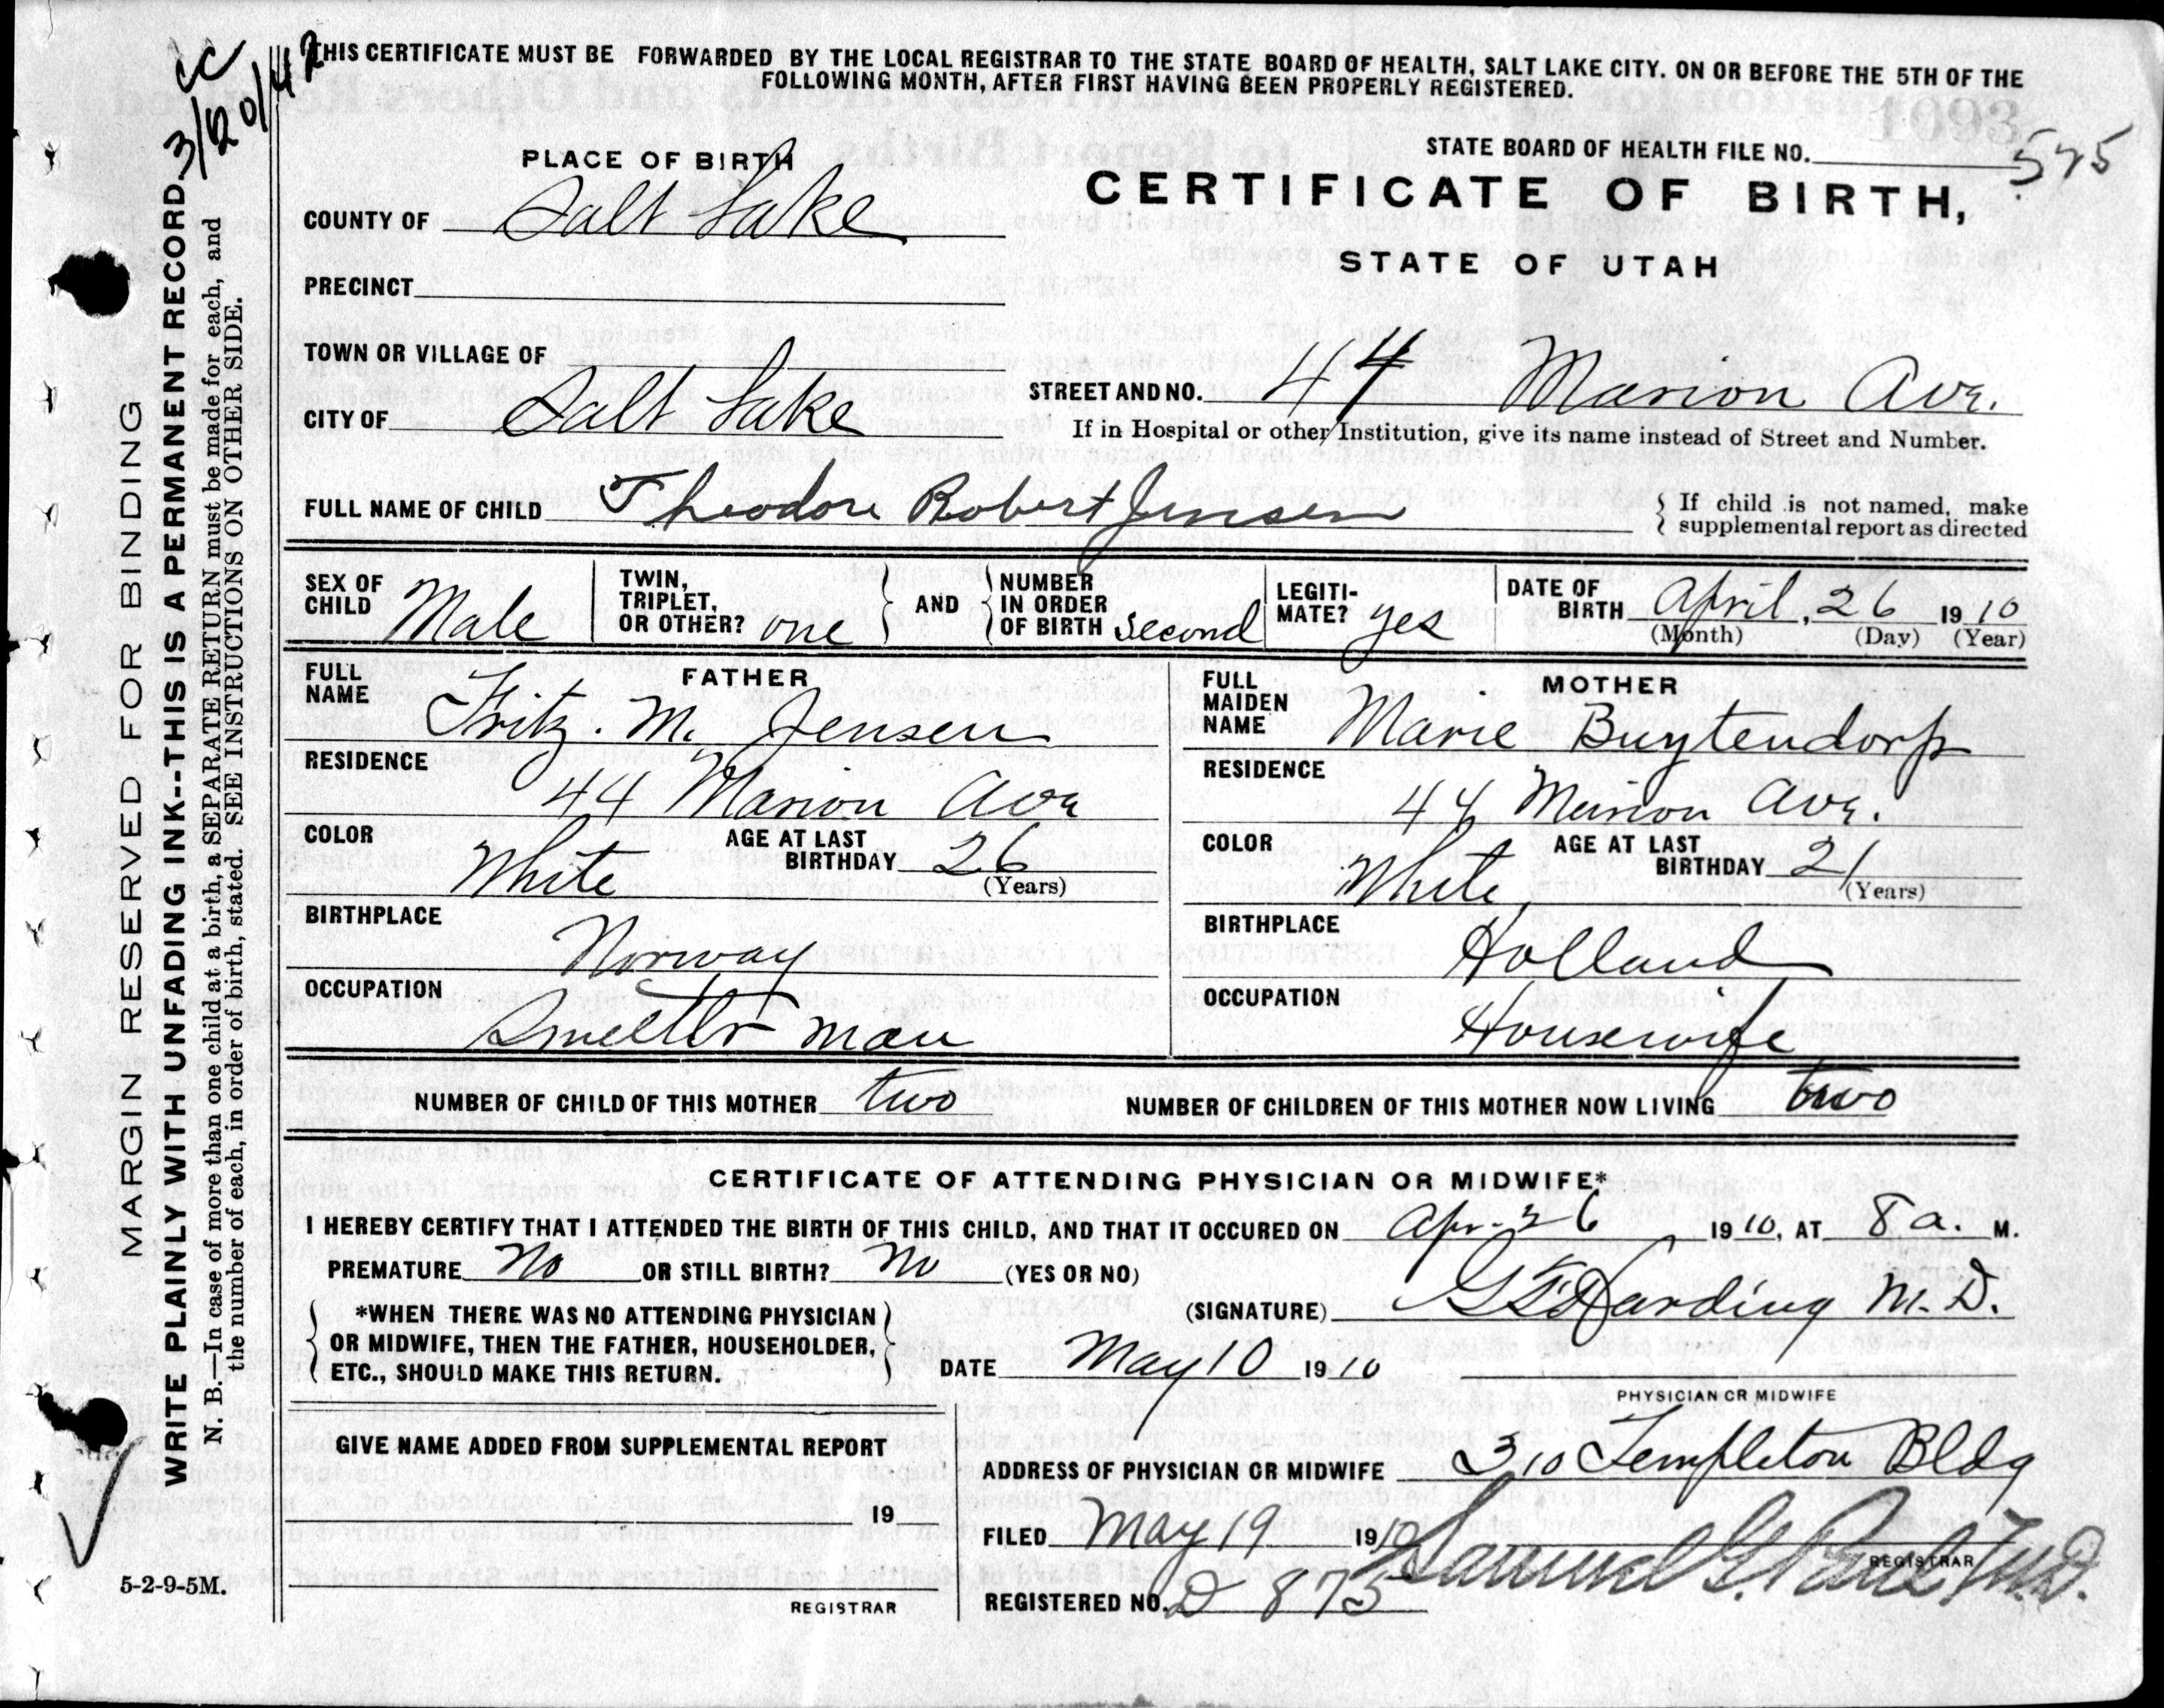 THIS CERTIFICATE MUST BE FORWARDED BY THE LOCAL REGISTRAR TO THE STATE BOARD OF HEALTH, SALT LAKE CITY. ON OR BEFORE THE 5TH OF THE
FOLLOWING MONTH, AFTER FIRST HAVING BEEN PROPERLY REGISTERED.
3/20/42
STATE BOARD OF HEALTH FILE NO. 575
CERTIFICATE OF BIRTH,
STATE OF UTAH
PLACE OF BIRTH
COUNTY OF Salt Lake
PRECINCT
TOWN OR VILLAGE OF
CITY OF Salt Lake
STREET AND NO. 44 Marion Ave.
If in Hospital or other Institution, give its name instead of Street and Number.
FULL NAME OF CHILD Theodore Robert Jensen
If child is not named, make
supplemental report as directed
SEX OF CHILD Male
TWIN, TRIPLET, OR OTHER? one
AND
NUMBER IN ORDER OF BIRTH second
LEGITI-MATE? yes
DATE OF BIRTH April, 26 1910
(Month) (Day) (Year)
FATHER
FULL NAME Fritz. M. Jensen
RESIDENCE
44 Marion Ave
COLOR White
AGE AT LAST BIRTHDAY 26
(Years)
BIRTHPLACE
Norway
OCCUPATION
Smelter man
MOTHER
FULL MAIDEN NAME Marie Buytendorp
RESIDENCE
44 Marion Ave.
COLOR White
AGE AT LAST BIRTHDAY 21
(Years)
BIRTHPLACE
Holland
OCCUPATION
Housewife
NUMBER OF CHILD OF THIS MOTHER two
NUMBER OF CHILDREN OF THIS MOTHER NOW LIVING two
CERTIFICATE OF ATTENDING PHYSICIAN OR MIDWIFE*
I HEREBY CERTIFY THAT I ATTENDED THE BIRTH OF THIS CHILD, AND THAT IT OCCURED ON Apr. 26 1910, AT 8 a. M.
PREMATURE No OR STILL BIRTH? No (YES OR NO)
*WHEN THERE WAS NO ATTENDING PHYSICIAN
OR MIDWIFE, THEN THE FATHER, HOUSEHOLDER,
ETC., SHOULD MAKE THIS RETURN.
(SIGNATURE) Harding M.D.
DATE May 10 1910
PHYSICIAN OR MIDWIFE
GIVE NAME ADDED FROM SUPPLEMENTAL REPORT
19
REGISTRAR
ADDRESS OF PHYSICIAN OR MIDWIFE 310 Templeton Bldg
FILED May 19 1910 Samuel G. Paul M.D.
REGISTRAR
REGISTERED NO. D 875
MARGIN RESERVED FOR BINDING
WRITE PLAINLY WITH UNFADING INK--THIS IS A PERMANENT RECORD.
N. B.—In case of more than one child at a birth, a SEPARATE RETURN must be made for each, and
the number of each, in order of birth, stated. SEE INSTRUCTIONS ON OTHER SIDE.
5-2-9-5M.